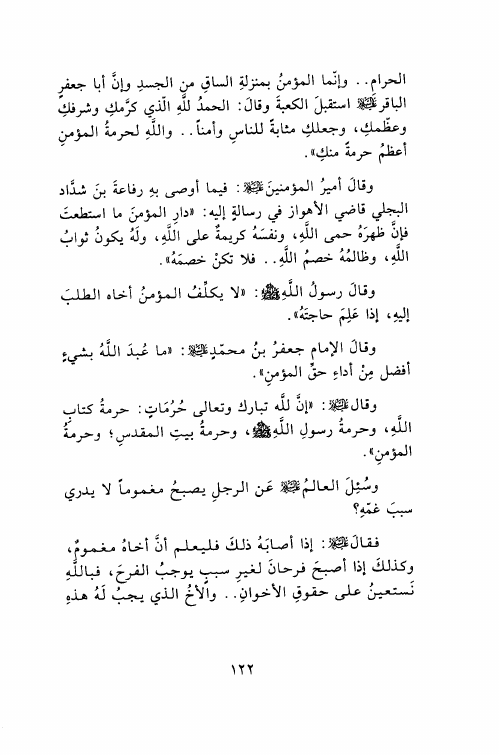 الحرامِ.. وإنَّما المؤمنُ بمنزلةِ الساقِ من الجسدِ وإنَّ أبا جعفرٍ
الباقر عليه السلام استقبلَ الكعبةَ وقالَ: الحمدُ للَّهِ الّذي كرَّمكِ وشرفكِ
وعظّمكِ، وجعلكِ مثابةً للناسِ وأمناً.. واللَّهِ لحرمةُ المؤمنِ
أعظمُ حرمةً منكِ».
وقالَ أميرُ المؤمنينَ عليه السلام: فيما أوصى بهِ رفاعةَ بنَ شدَّاد
البجلي قاضي الأهواز في رسالةٍ إليه: «دارِ المؤمنَ ما استطعتَ
فإنَّ ظهرَهُ حمى اللَّهِ، ونفسَهُ كريمةٌ على اللَّهِ، ولَهُ يكونُ ثوابُ
اللَّهِ، وظالمُهُ خصمُ اللَّهِ.. فلا تكنْ خصمَهُ».
وقالَ رسولُ اللَّهِ صلى الله عليه وآله وسلم: «لا يكلِّفُ المؤمنُ أخاه الطلبَ
إليهِ، إذا عَلِمَ حاجتَهُ».
وقالَ الإمام جعفرُ بنُ محمّدٍ عليه السلام: «ما عُبدَ اللَّهُ بشيءٍ
أفضل مِنْ أداءِ حقِّ المؤمنِ».
وقال عليه السلام: «إنَّ للَّه تبارك وتعالى حُرُمَاتٍ: حرمةُ كتابِ
اللَّهِ، وحرمةُ رسولِ اللَّهِ صلى الله عليه وآله وسلم، وحرمةُ بيتِ المقدسِ؛ وحرمةُ
المؤمنِ».
وسُئِلَ العالمُ عليه السلام عَن الرجلِ يصبحُ مغموماً لا يدري
سببَ غمّهِ؟
فقالَ عليه السلام: إذا أصابَهُ ذلكَ فليعلم أنَّ أخاهُ مغمومٌ،
وكذلكَ إذا أصبحَ فرحانَ لغيرِ سببٍ يوجبُ الفرحَ، فباللَّهِ
نَستعينُ على حقوقِ الأخوانِ.. والأخُ الذي يجبُ لَهُ هذهِ
١٢٢